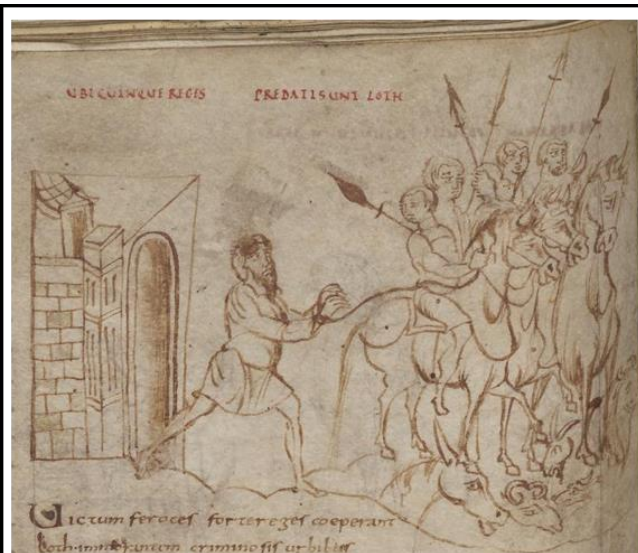 UBI QUINQUE REGIS PREDATI SUNT LOTH
Victum feroces forte reges coeperant
Loth immorantem criminosis urbibus